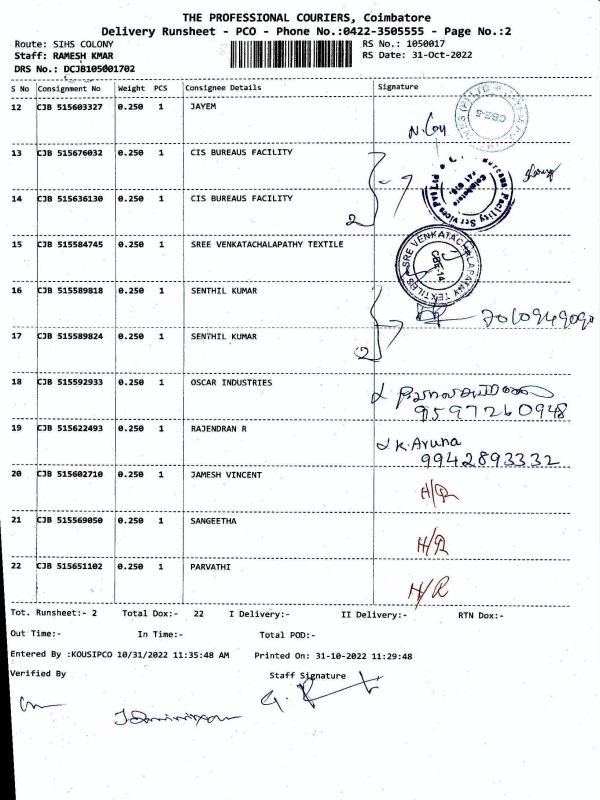 THE PROFESSIONAL COURIERS, Coimbatore
Delivery Runsheet - PCO - Phone No.:0422-3505555 - Page No.:2
Route: SIHS COLONY
RS No.: 1050017
Staff: RAMESH KMAR
RS Date: 31-Oct-2022
DRS No.: DCJB105001702
S No Consignment No Weight PCS Consignee Details Signature
12 CJB 515603327 0.250 1 JAYEM
13 CJB 515676032 0.250 1 CIS BUREAUS FACILITY
14 CJB 515636130 0.250 1 CIS BUREAUS FACILITY
2
15 CJB 515584745 0.250 1 SREE VENKATACHALAPATHY TEXTILE
SRE VENKATACHALAPATHY TEXTILES
CBE-14
16 CJB 515589818 0.250 1 SENTHIL KUMAR
17 CJB 515589824 0.250 1 SENTHIL KUMAR
2
18 CJB 515592933 0.250 1 OSCAR INDUSTRIES
9597260948
19 CJB 515622493 0.250 1 RAJENDRAN R
K. Aruna
9942893332
20 CJB 515602710 0.250 1 JAMESH VINCENT H/R
21 CJB 515569050 0.250 1 SANGEETHA H/R
22 CJB 515651102 0.250 1 PARVATHI H/R
Tot. Runsheet:- 2 Total Dox:- 22 I Delivery:- II Delivery:- RTN Dox:-
Out Time:- In Time:- Total POD:-
Entered By :KOUSIPCO 10/31/2022 11:35:48 AM Printed On: 31-10-2022 11:29:48
Verified By Staff Signature